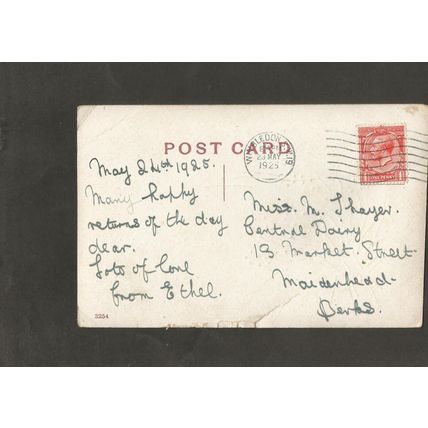 POST CARD
WIMBLEDON S.W.19
23 MAY
1925
ONE PENNY
May 24th 1925.
Many happy
returns of the day
dear.
Lots of love
from Ethel.
Miss. M. Thayer.
Central Dairy
13 Market Street
Maidenhead
Berks.
3254